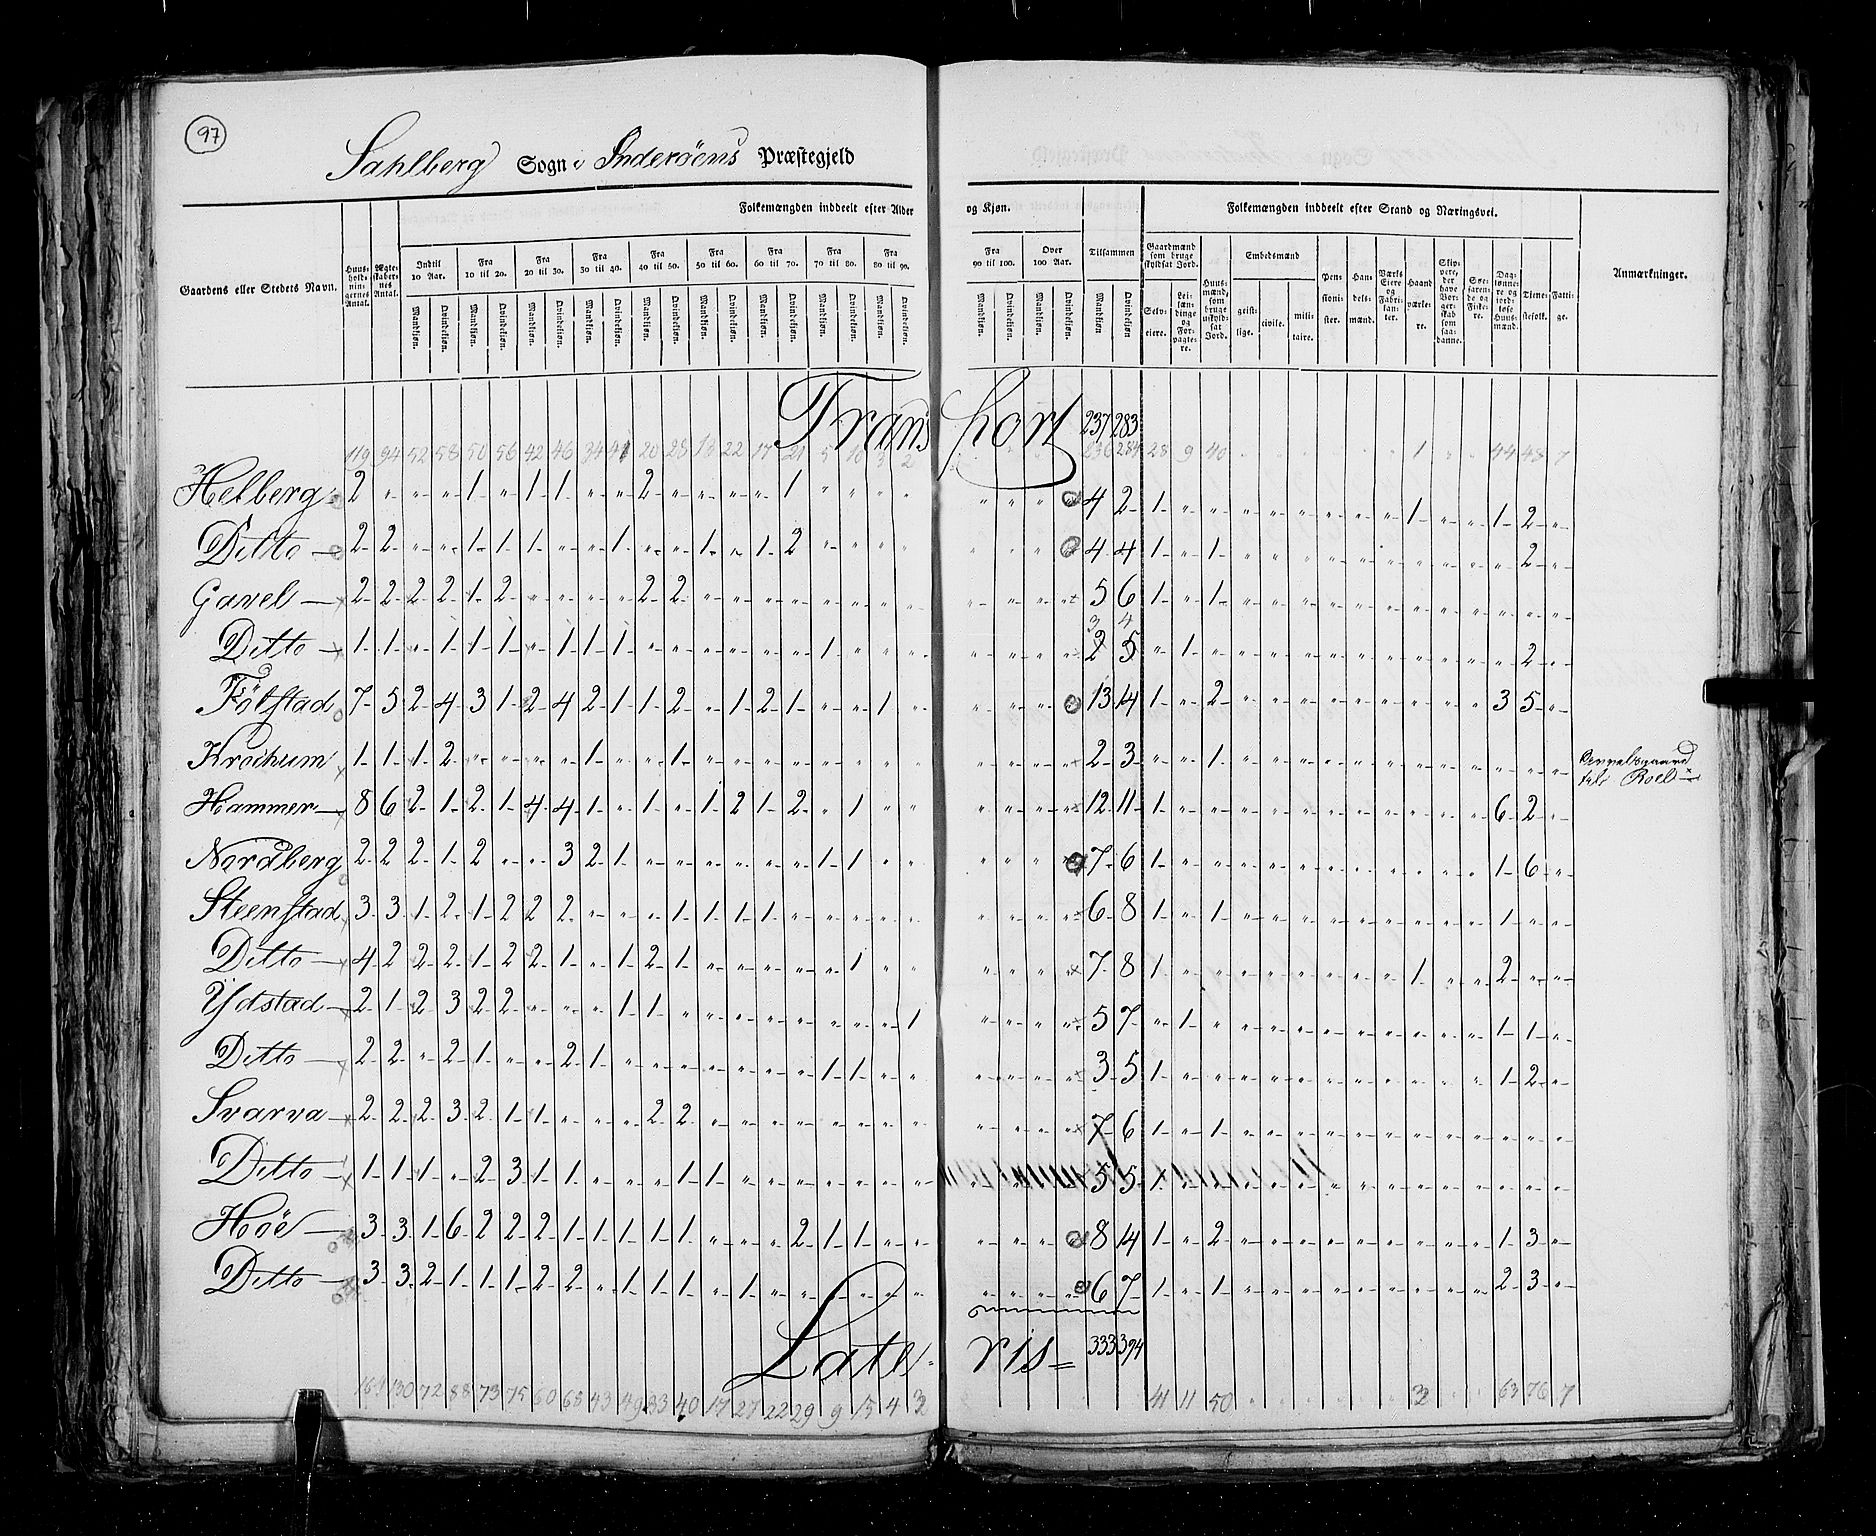 97
Sahlberg Sogn i Inderöens Præstegjeld
Folkemængden inddeelt efter Alder og Kjøn. Folkemængden inddeelt efter Stand og Næringsvei.
Gaardens eller Stedets Navn. Huusholdningernes Antal. Ægteskabernes Antal. Indtil 10 Aar. Fra 10 til 20. Fra 20 til 30. Fra 30 til 40. Fra 40 til 50. Fra 50 til 60. Fra 60 til 70. Fra 70 til 80. Fra 80 til 90. Fra 90 til 100. Over 100 Aar. Tilsammen Gaardmænd som bruge skyldsat Jord. Huusmænd, som bruge uskyldsat Jord. Embedsmænd Pensionister. Handelsmænd. Værks Eiere og Fabrikanter. Haandværkere. Tjenestefolk. Fattige. Anmærkninger.
Mandkjøn. Qvindekjøn. Selveiere. Leilændinge og Forpagtere. geistlige. civile. militaire.
Transport 237 283
119 94 52 58 50 56 42 46 34 41 20 28 22 17 21 5 236 284 28 9 40 1 44 48 7
Helberg 2 „ „ „ 1 „ 1 1 „ „ 2 „ „ „ „ 1 „ „ „ „ „ „ „ „ 4 2 1 „ „ „ „ „ „ „ „ 1 „ „ 1 2 „
Ditto 2 2 „ „ 1 1 1 „ „ 1 „ „ 1 „ 1 2 „ „ „ „ „ „ „ „ 4 4 1 „ 1 „ „ „ „ „ „ „ „ „ „ 2 „
Gavel 2 2 2 2 1 2 „ „ „ „ 2 2 „ „ „ „ „ „ „ „ „ „ „ „ 5 6 1 „ 1 „ „ „ „ „ „ „ „ „ „ „ „
3 4
Ditto 1 1 „ 1 1 1 „ 1 1 1 „ „ „ „ „ „ 1 „ „ „ „ „ „ „ 2 5 „ 1 „ „ „ „ „ „ „ „ „ „ „ 2 „
Fölstad 7 5 2 4 3 1 2 4 2 1 1 2 „ 1 2 1 „ „ 1 „ „ „ „ „ 13 14 1 „ 2 „ „ „ „ „ „ „ „ „ 3 5 „
1 1 1 2 „ „ „ „ 1 „ „ 1 „ „ „ „ „ „ „ „ „ „ „ „ 2 3 „ „ 1 „ „ „ „ „ „ „ „ „ „ „ „
Hammer 8 6 2 1 2 1 4 4 1 „ 1 „ 1 2 1 2 „ 1 „ „ „ „ „ „ 12 11 1 „ „ „ „ „ „ „ „ „ „ „ 6 2 „
Nordberg 2 2 2 1 2 „ „ 3 2 1 „ „ „ „ „ „ 1 1 „ „ „ „ „ „ 7 6 1 „ „ „ „ „ „ „ „ „ „ „ 1 6 „
Steenstad 3 3 1 2 1 2 2 2 „ „ „ 1 1 1 1 „ „ „ „ „ „ „ „ „ 6 8 1 „ 1 „ „ „ „ „ „ „ „ „ 1 „ „
Ditto 4 2 2 2 1 2 2 1 „ 1 2 1 „ „ „ „ „ 1 „ „ „ „ „ „ 7 8 1 „ „ „ „ „ „ „ „ 1 „ „ 2 „ „
Ydstad 2 1 2 3 2 2 „ „ „ 1 1 „ „ „ „ „ „ „ „ 1 „ „ „ „ 5 7 „ 1 „ „ „ „ „ „ „ „ „ „ 1 1 „
Ditto 2 2 „ 2 1 „ „ 2 1 „ „ „ „ „ „ „ 1 1 „ „ „ „ „ „ 3 5 1 „ „ „ „ „ „ „ „ „ „ „ 1 2 „
Svarva 2 2 2 3 2 1 1 „ „ „ 2 2 „ „ „ „ „ „ „ „ „ „ „ „ 7 6 1 „ 1 „ „ „ „ „ „ „ „ „ „ „ „
Ditto 1 1 1 „ 2 3 1 1 „ „ „ 1 1 „ „ „ „ „ „ „ „ „ „ „ 5 5 1 „ „ „ „ „ „ „ „ „ „ „ „ „ „
Höe 3 3 1 6 2 2 2 1 1 1 1 1 „ „ „ 2 1 1 „ „ „ „ „ „ 8 14 1 „ 2 „ „ „ „ „ „ „ „ „ 1 3 „
Ditto 3 3 2 1 1 1 2 2 „ 1 1 1 „ 1 „ „ „ „ „ „ „ „ „ „ 6 7 1 „ 1 „ „ „ „ „ „ „ „ „ 2 3 „
Lateris 333 394
130 72 88 73 75 60 68 43 49 33 40 17 27 22 29 9 15 4 3 41 11 50 63 76 7